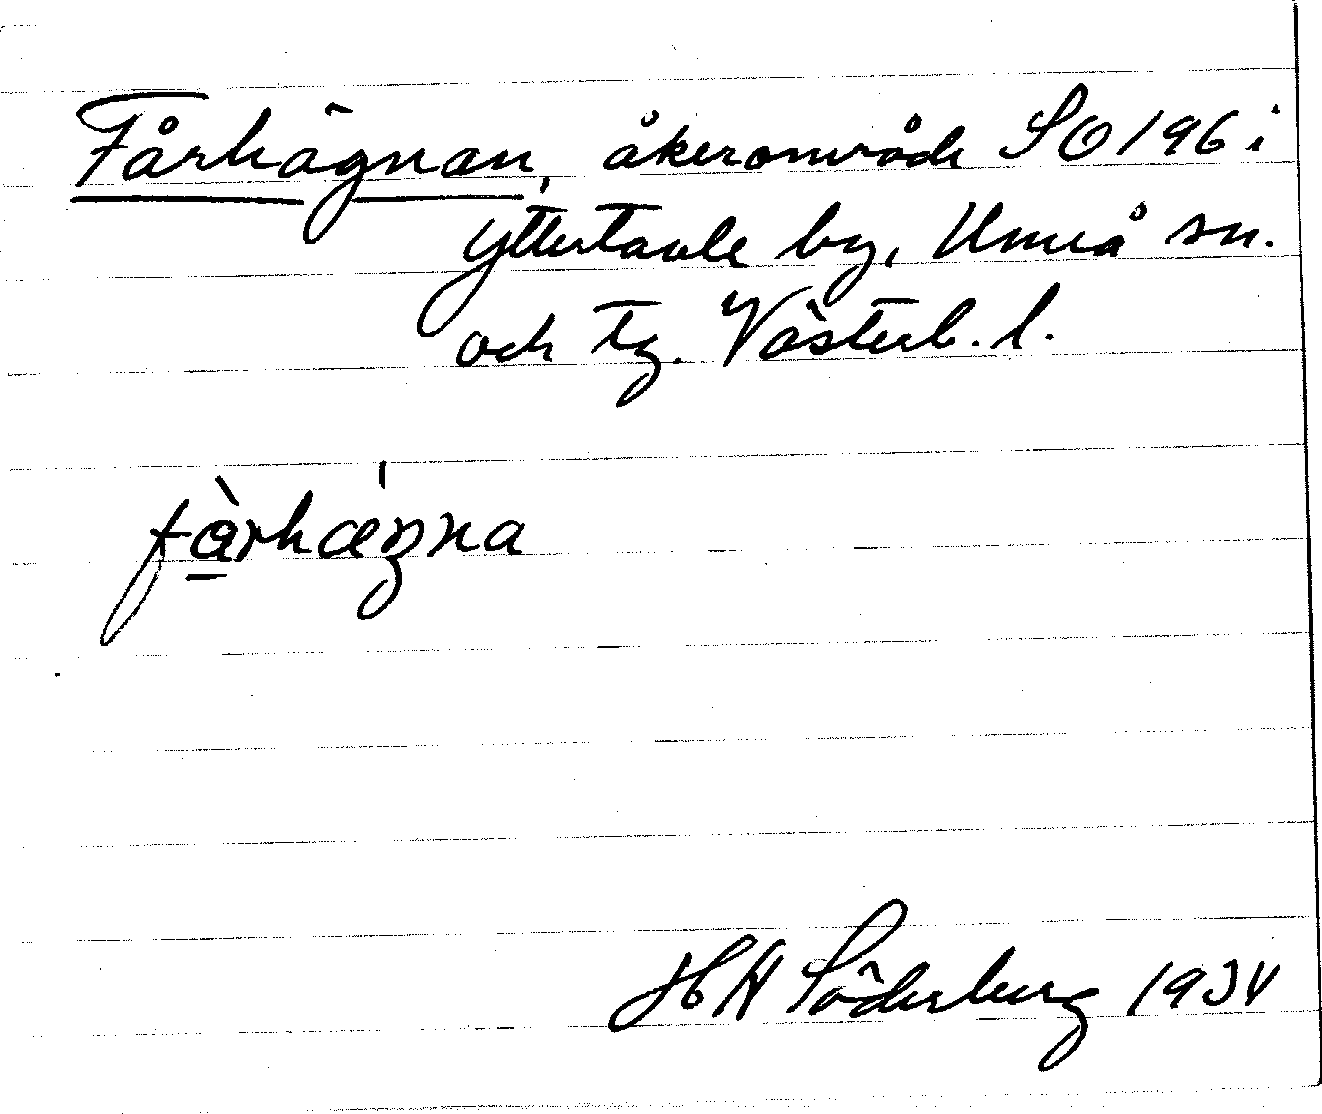 Fårhägnan, åkerområde SO 196 i
Yttertavle by, Umeå sn.
och tg. Västerb. l.
fàrhæŋna
HH Söderberg 1934